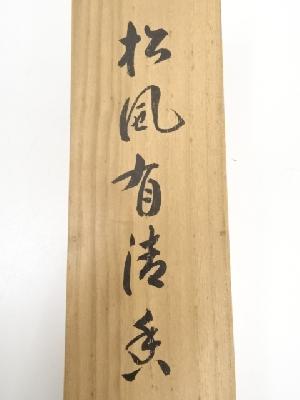 松風有清香